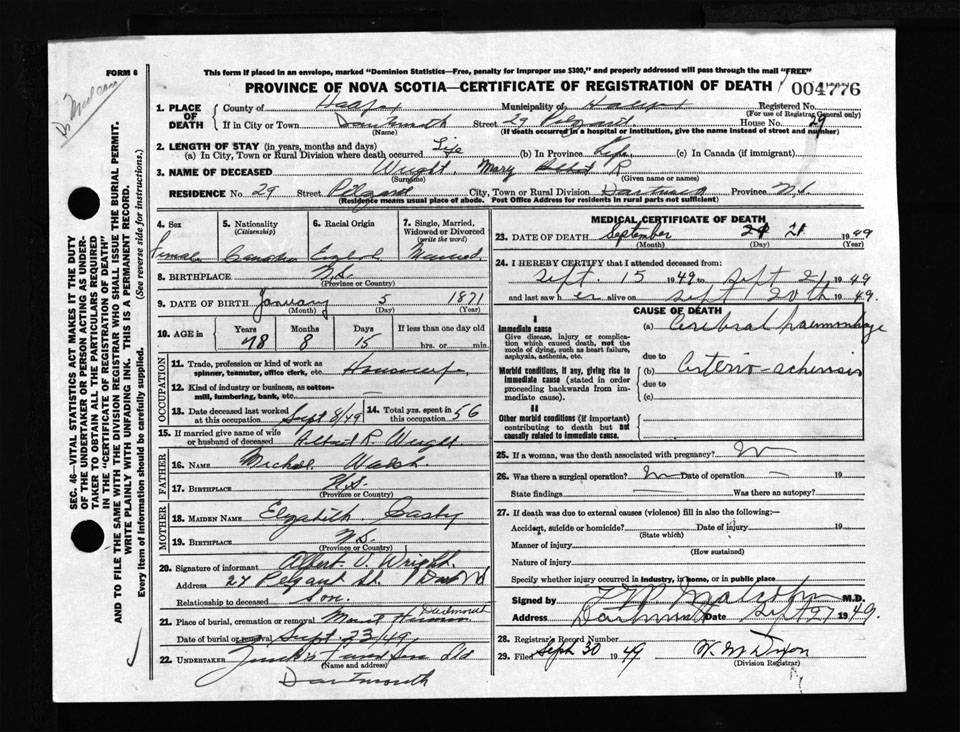 FORM 6
This form if placed in an envelope, marked "Dominion Statistics—Free, penalty for improper use $300," and properly addressed will pass through the mail "FREE"
PROVINCE OF NOVA SCOTIA—CERTIFICATE OF REGISTRATION OF DEATH 004776
SEC. 46—VITAL STATISTICS ACT MAKES IT THE DUTY
OF THE UNDERTAKER OR PERSON ACTING AS UNDER-
TAKER TO OBTAIN ALL THE PARTICULARS REQUIRED
IN THE "CERTIFICATE OF REGISTRATION OF DEATH"
AND TO FILE THE SAME WITH THE DIVISION REGISTRAR WHO SHALL ISSUE THE BURIAL PERMIT.
WRITE PLAINLY WITH UNFADING INK. THIS IS A PERMANENT RECORD.
Every item of information should be carefully supplied. (See reverse side for instructions.)
1. PLACE OF DEATH County of Halifax Municipality of Halifax Registered No.
(For use of Registrar General only)
If in City or Town Dartmouth Street 29 House No. 29
(Name) (If death occurred in a hospital or institution, give the name instead of street and number)
2. LENGTH OF STAY (in years, months and days)
(a) In City, Town or Rural Division where death occurred Life (b) In Province Life (c) In Canada (if immigrant)
3. NAME OF DECEASED Wright, Mary R
(Surname) (Given name or names)
RESIDENCE No. 29 Street City, Town or Rural Division Dartmouth Province N.S.
(Residence means usual place of abode. Post Office Address for residents in rural parts not sufficient)
4. Sex Female
5. Nationality (Citizenship) Canadian
6. Racial Origin English
7. Single, Married, Widowed or Divorced (write the word) Married
8. BIRTHPLACE N.S.
(Province or Country)
9. DATE OF BIRTH January 5 1871
(Month) (Day) (Year)
10. AGE in Years 78 Months 8 Days 15 If less than one day old hrs. or min.
OCCUPATION
11. Trade, profession or kind of work as spinner, teamster, office clerk, etc. Housewife
12. Kind of industry or business, as cotton-mill, lumbering, bank, etc. —
13. Date deceased last worked at this occupation Sept 8/49 14. Total yrs. spent in this occupation 56
15. If married give name of wife or husband of deceased Albert R Wright
FATHER
16. NAME Walsh
17. BIRTHPLACE N.S.
(Province or Country)
MOTHER
18. MAIDEN NAME Elizabeth
19. BIRTHPLACE N.S.
(Province or Country)
20. Signature of informant Albert V. Wright
Address St.
Relationship to deceased Son
21. Place of burial, cremation or removal Mount Hermon Dartmouth
Date of burial or removal Sept. 23/49
22. UNDERTAKER Ltd
(Name and address)
Dartmouth
MEDICAL CERTIFICATE OF DEATH
23. DATE OF DEATH September 21 1949
(Month) (Day) (Year)
24. I HEREBY CERTIFY that I attended deceased from:
Sept. 15 1949 to Sept 21 1949
and last saw her alive on Sept 20th 1949.
CAUSE OF DEATH
I
Immediate cause
Give disease, injury or complication which caused death, not the mode of dying, such as heart failure, asphyxia, asthenia, etc.
(a) Cerebral haemorrhage
due to
Morbid conditions, if any, giving rise to immediate cause (stated in order proceeding backwards from immediate cause).
(b) Arterio-
due to
(c)
II
Other morbid conditions (if important) contributing to death but not causally related to immediate cause.
25. If a woman, was the death associated with pregnancy?
26. Was there a surgical operation? Date of operation — 19
State findings — Was there an autopsy?
27. If death was due to external causes (violence) fill in also the following:—
Accident, suicide or homicide? Date of injury 19
(State which)
Manner of injury
(How sustained)
Nature of injury
Specify whether injury occurred in industry, in home, or in public place
Signed by Malcolm M.D.
Address Dartmouth Date Sept 27 1949.
28. Registrar's Record Number
29. Filed Sept 30 1949 W. W Dixon
(Division Registrar)